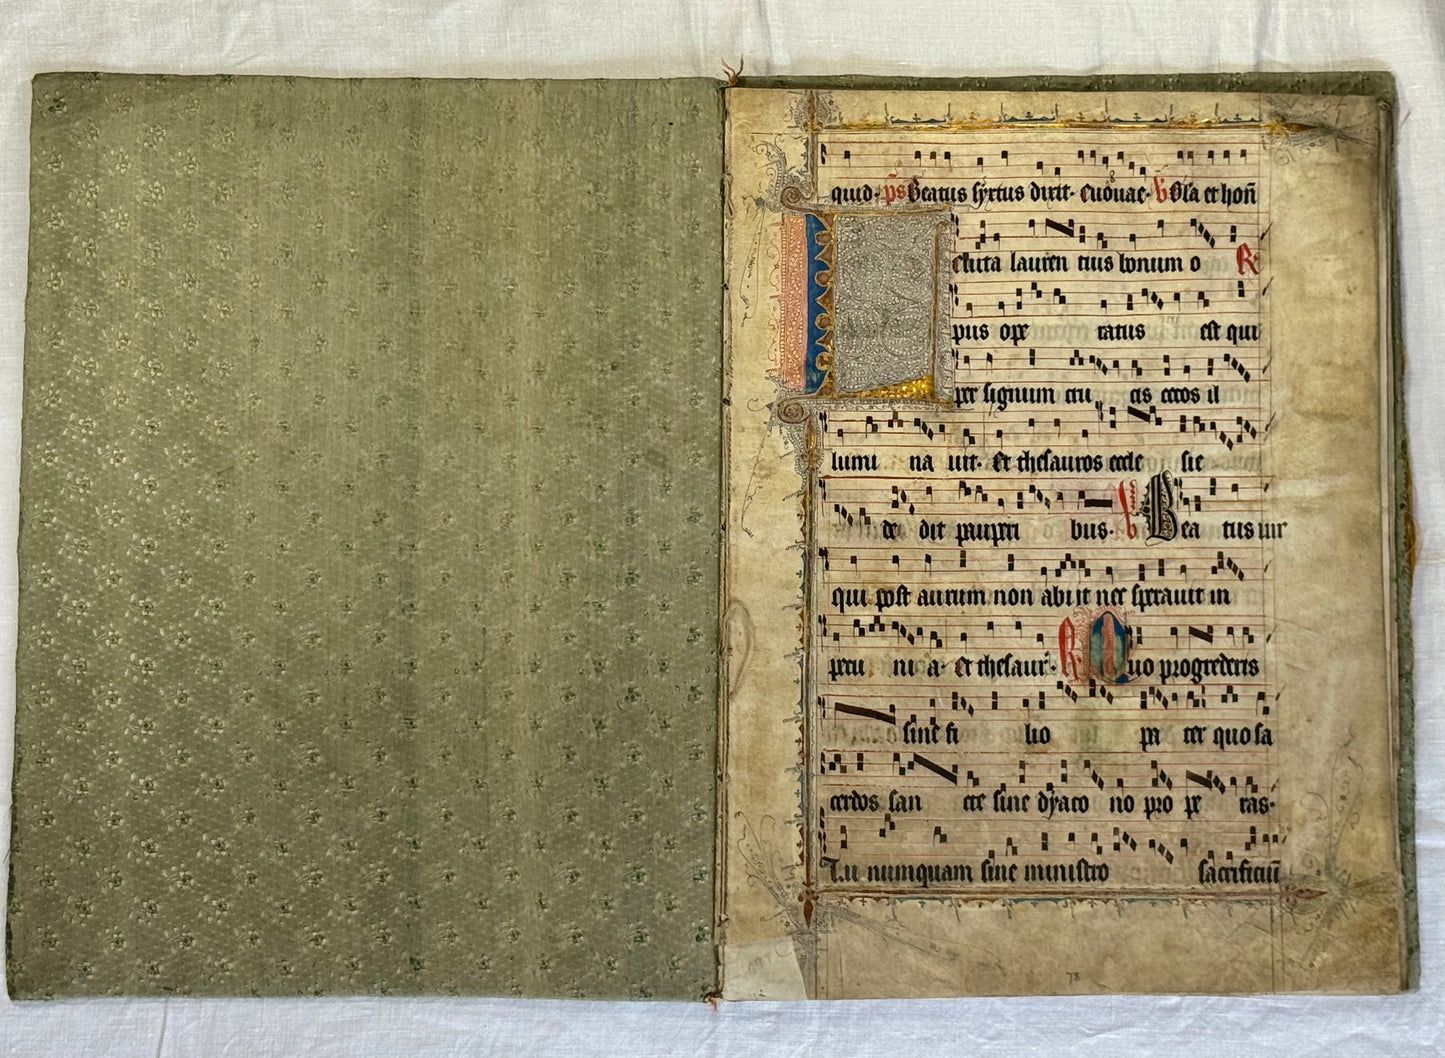 quid· p̄s Beatus syxtus dixit· Euouae· v Gl̄a et hon̄
Leuita lauren tius bonum o R
pus ope ratus est qui
per signum cru cis cecos il
lumi na uit· Et thesauros eccle sie
de dit pauperi bus· v Bea tus uir
qui post aurum non abijt nec sperauit in
pecu ni a· Et thesaur̄· R Quo progrederis
sine fi lio pa ter quo sa
cerdos san cte sine dyaco no pro pe ras·
Tu numquam sine ministro sacrificiū
78